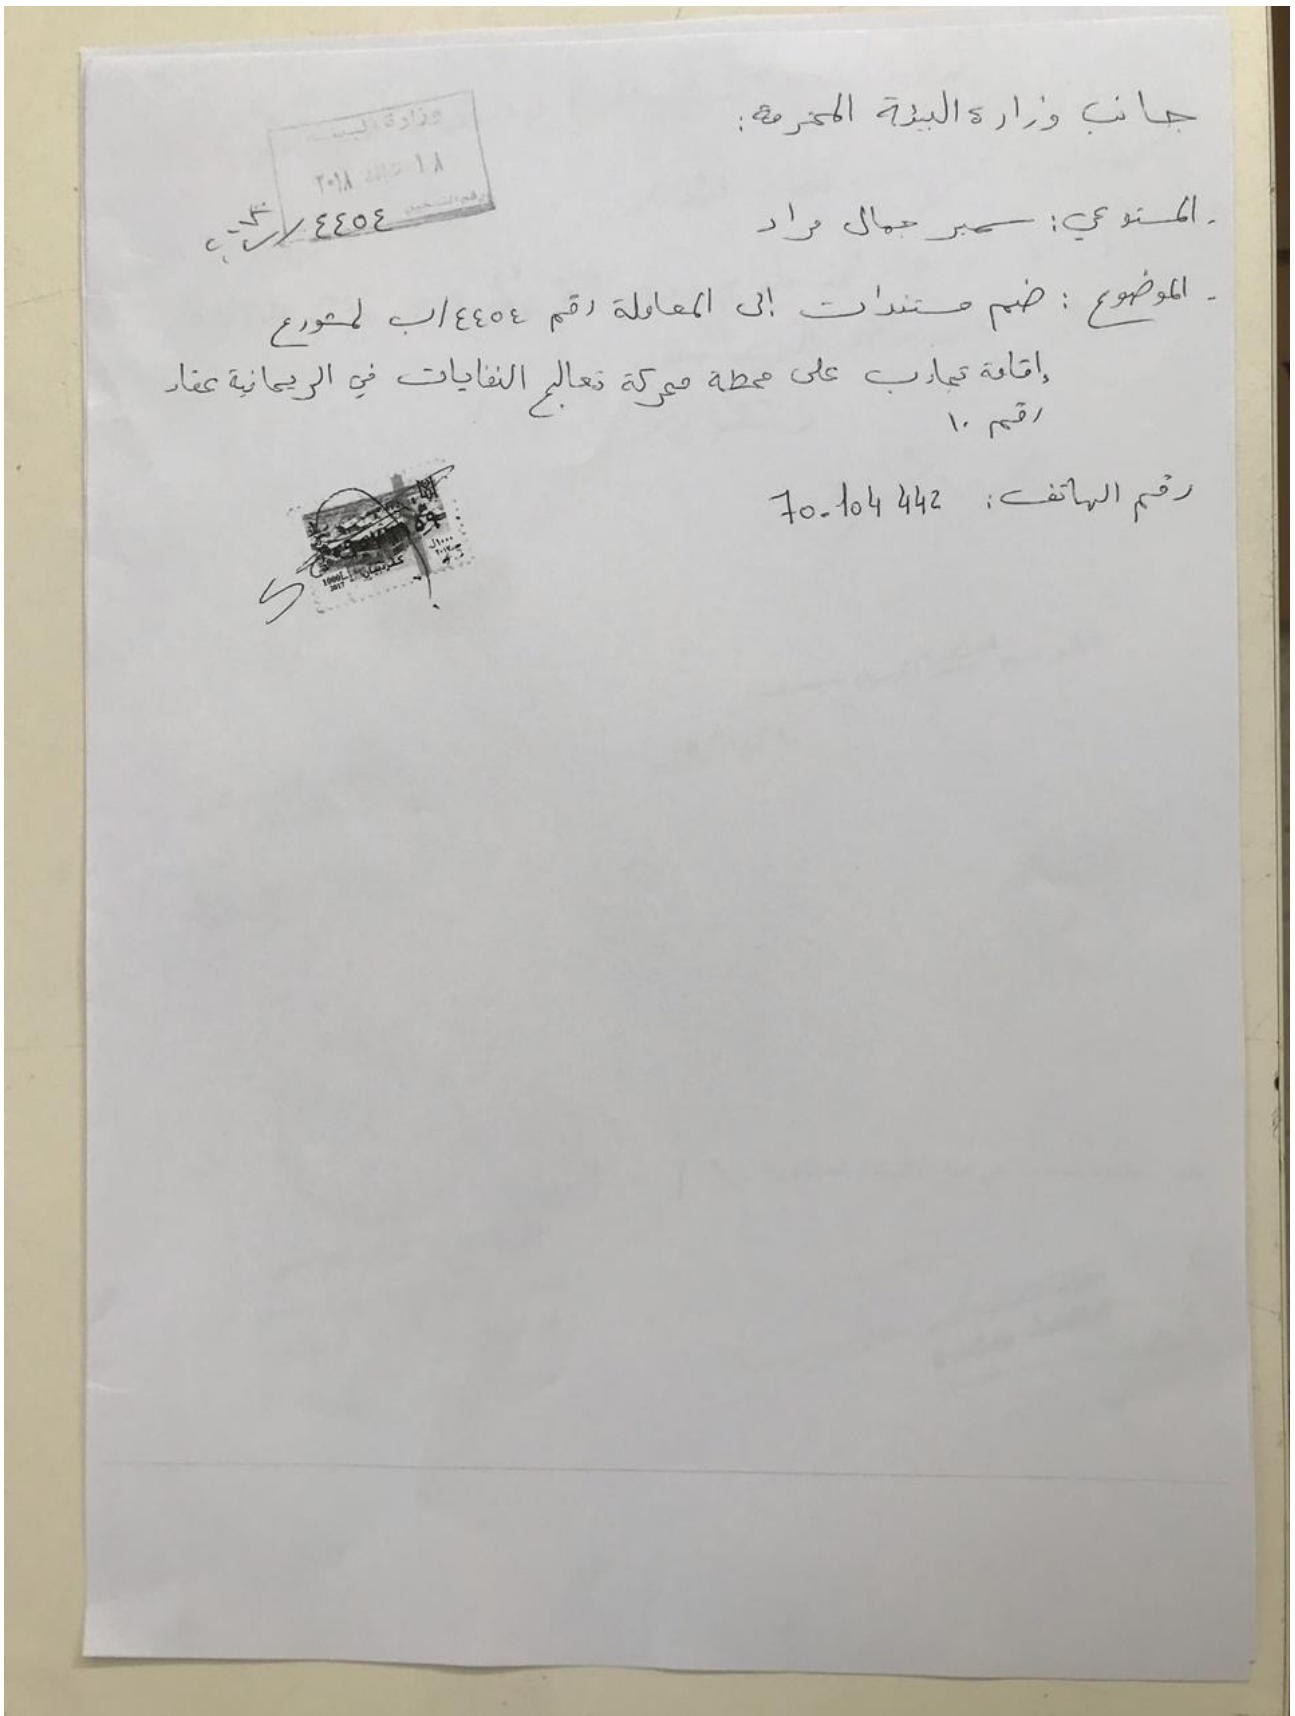 جانب وزارة البيئة المحترمة:
وزارة البيئة
١٨ ٢٠١٨
رقم التسجيل
٤٤٥٤/ب
- المستدعي: سمير جمال مراد
- الموضوع: ضم مستندات إلى المعاملة رقم ٤٤٥٤/ب لمشروع
إقامة تجارب على محطة محركة تعالج النفايات في الريحانية عقار
رقم ١٠
رقم الهاتف: 70.104 442
١٠٠٠ل.ل
٢٠١٧
كفردبيان
1000L.L
2017